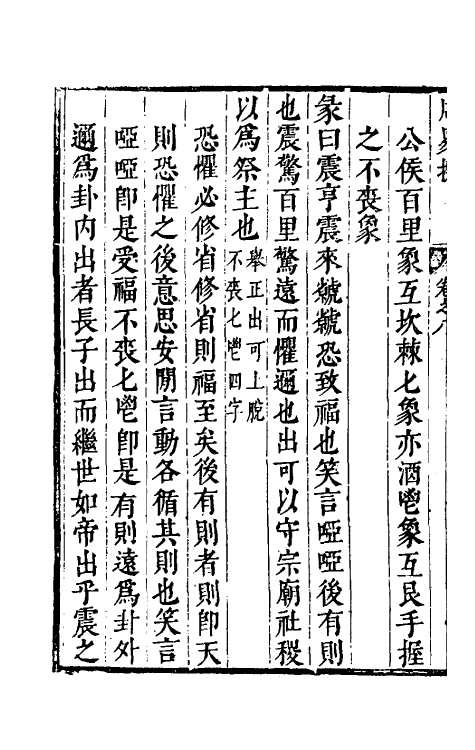 卷之八
公侯百里象互坎棘匕象亦酒鬯象互艮手握
之不喪象
彖曰震亨震來虩虩恐致福也笑言啞啞後有則
也震驚百里驚遠而懼邇也出可以守宗廟社稷
以爲祭主也舉正出可上脫不喪匕鬯四字
恐懼必修省修省則福至矣後有則者則卽天
則恐懼之後意思安閒言動各循其則也笑言
啞啞卽是受福不喪匕鬯卽是有則遠爲卦外
邇爲卦内出者長子出而繼世如帝出乎震之